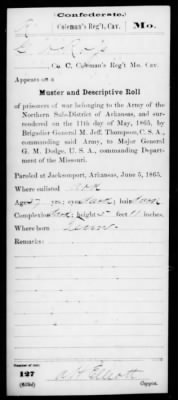 Confederate.
Coleman's Reg't, Cav. Mo.
Co. C, Coleman's Reg't Mo. Cav.
Appears on a
Muster and Descriptive Roll
of prisoners of war belonging to the Army of the
Northern Sub-District of Arkansas, and sur-
rendered on 11th day of May, 1865, by
Brigadier General M. Jeff. Thompson, C. S. A.,
commanding said Army, to Major General
G. M. Dodge, U. S. A., commanding Depart-
ment of the Missouri.
Paroled at Jacksonport, Arkansas, June 5, 1865.
Where enlisted Ark
Age 37 yrs; eyes dark; hair dark
Complexion dark; height 5 feet 11 inches.
Where born Tenn
Remarks:
Number of roll:
127
A H Elliott
Copyist.